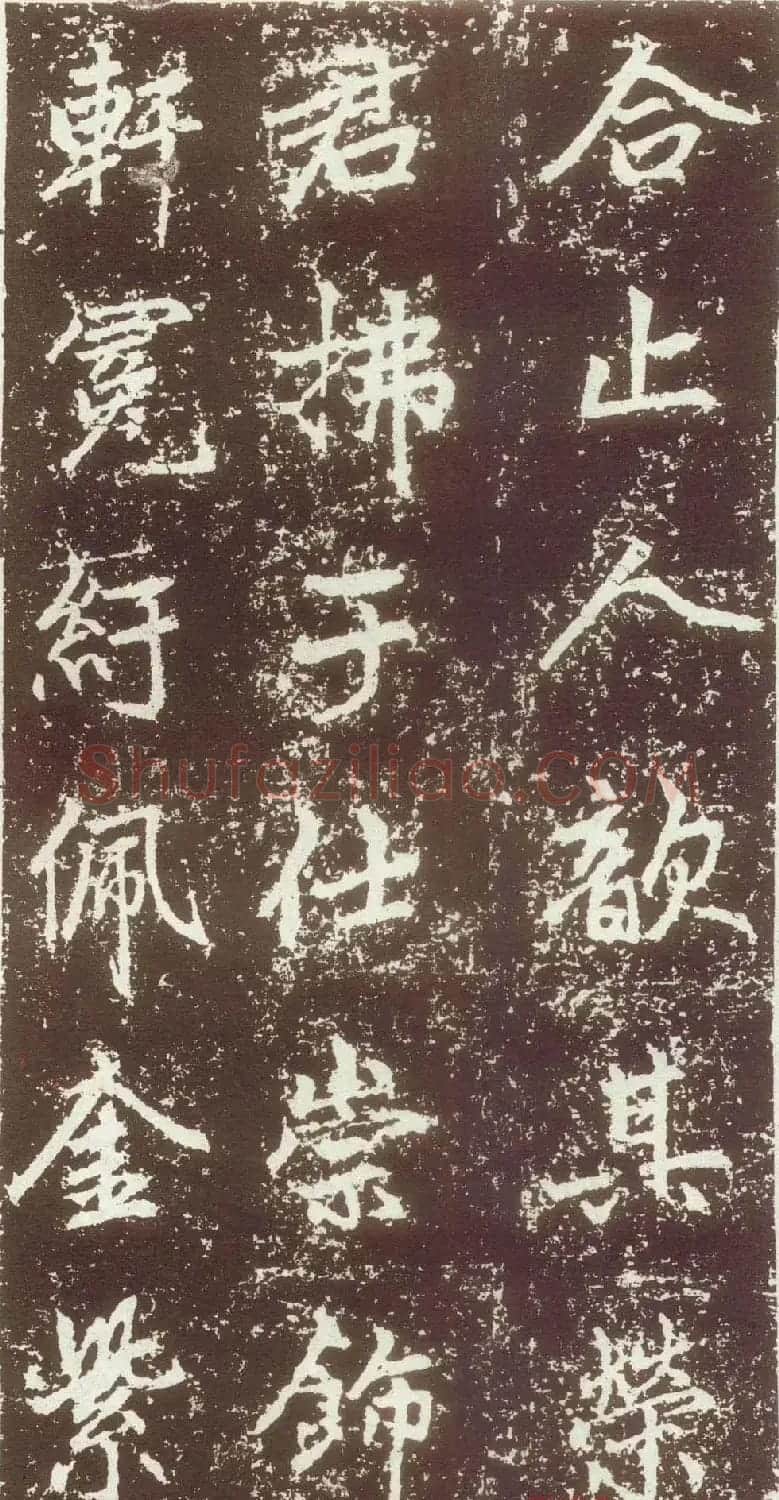 合止人歆其榮
君拂于仕崇飾
軒冕紆佩金紫
Shufaziliao.COM